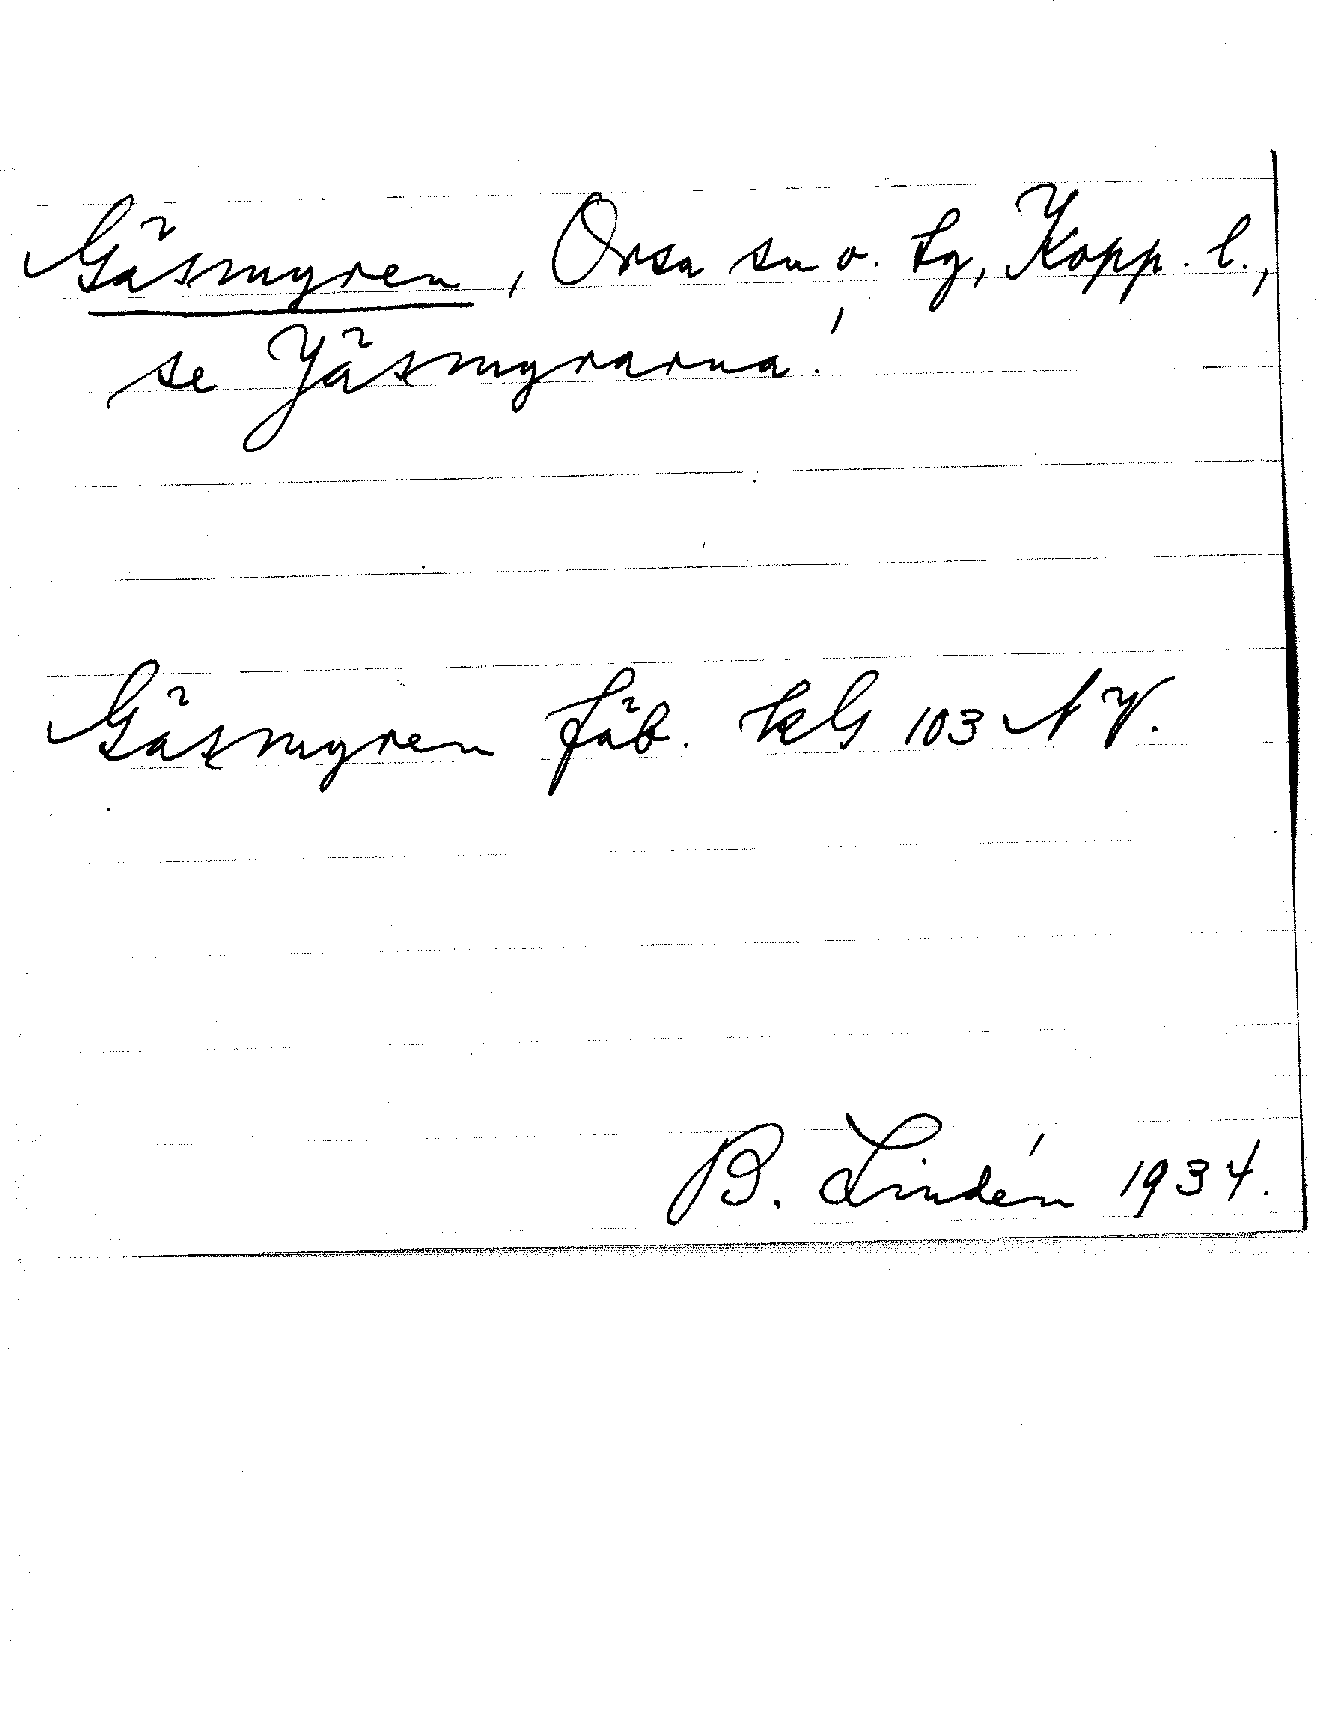 Gäsmyren, Orsa sn o. tg, Kopp. l.,
se Jäsmyrarna!
Gäsmyren fäb. kG 103 NV.
B. Lindén 1934.